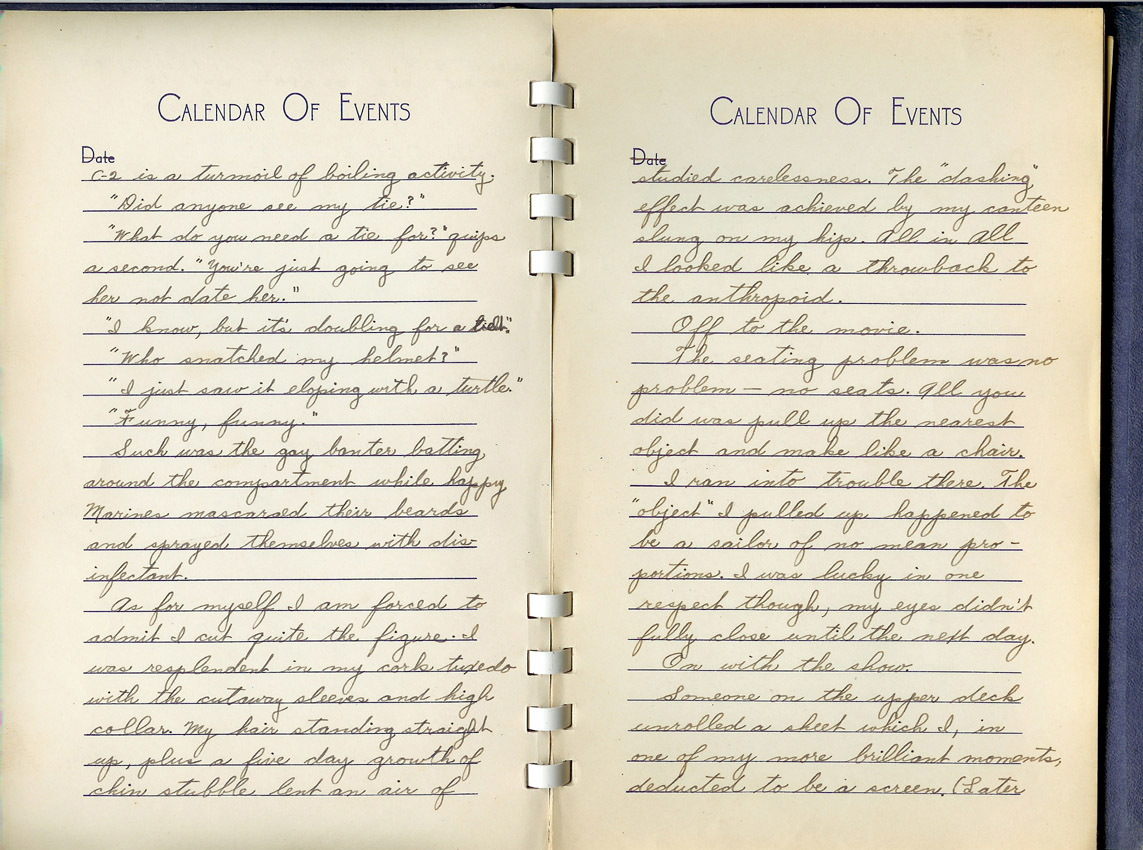 CALENDAR OF EVENTS
Date
C-2 is a turmoil of boiling activity.
"Did anyone see my tie?"
"What do you need a tie for?" quips
a second. "You're just going to see
her not date her."
"I know, but it's doubling for a belt."
"Who snatched my helmet?"
"I just saw it eloping with a turtle."
"Funny, funny."
Such was the gay banter batting
around the compartment while happy
Marines mascaraed their beards
and sprayed themselves with dis-
infectant.
As for myself I am forced to
admit I cut quite the figure. I
was resplendent in my cork tuxedo
with the cutaway sleeves and high
collar. My hair standing straight
up, plus a five day growth of
chin stubble lent an air of
CALENDAR OF EVENTS
Date
studied carelessness. The "dashing"
effect was achieved by my canteen
slung on my hip. All in All
I looked like a throwback to
the anthropoid.
Off to the movie.
The seating problem was no
problem — no seats. All you
did was pull up the nearest
object and make like a chair.
I ran into trouble there. The
"object" I pulled up happened to
be a sailor of no mean pro-
portions. I was lucky in one
respect though, my eyes didn't
fully close until the next day.
On with the show.
Someone on the upper deck
unrolled a sheet which I, in
one of my more brilliant moments,
deducted to be a screen. (Later